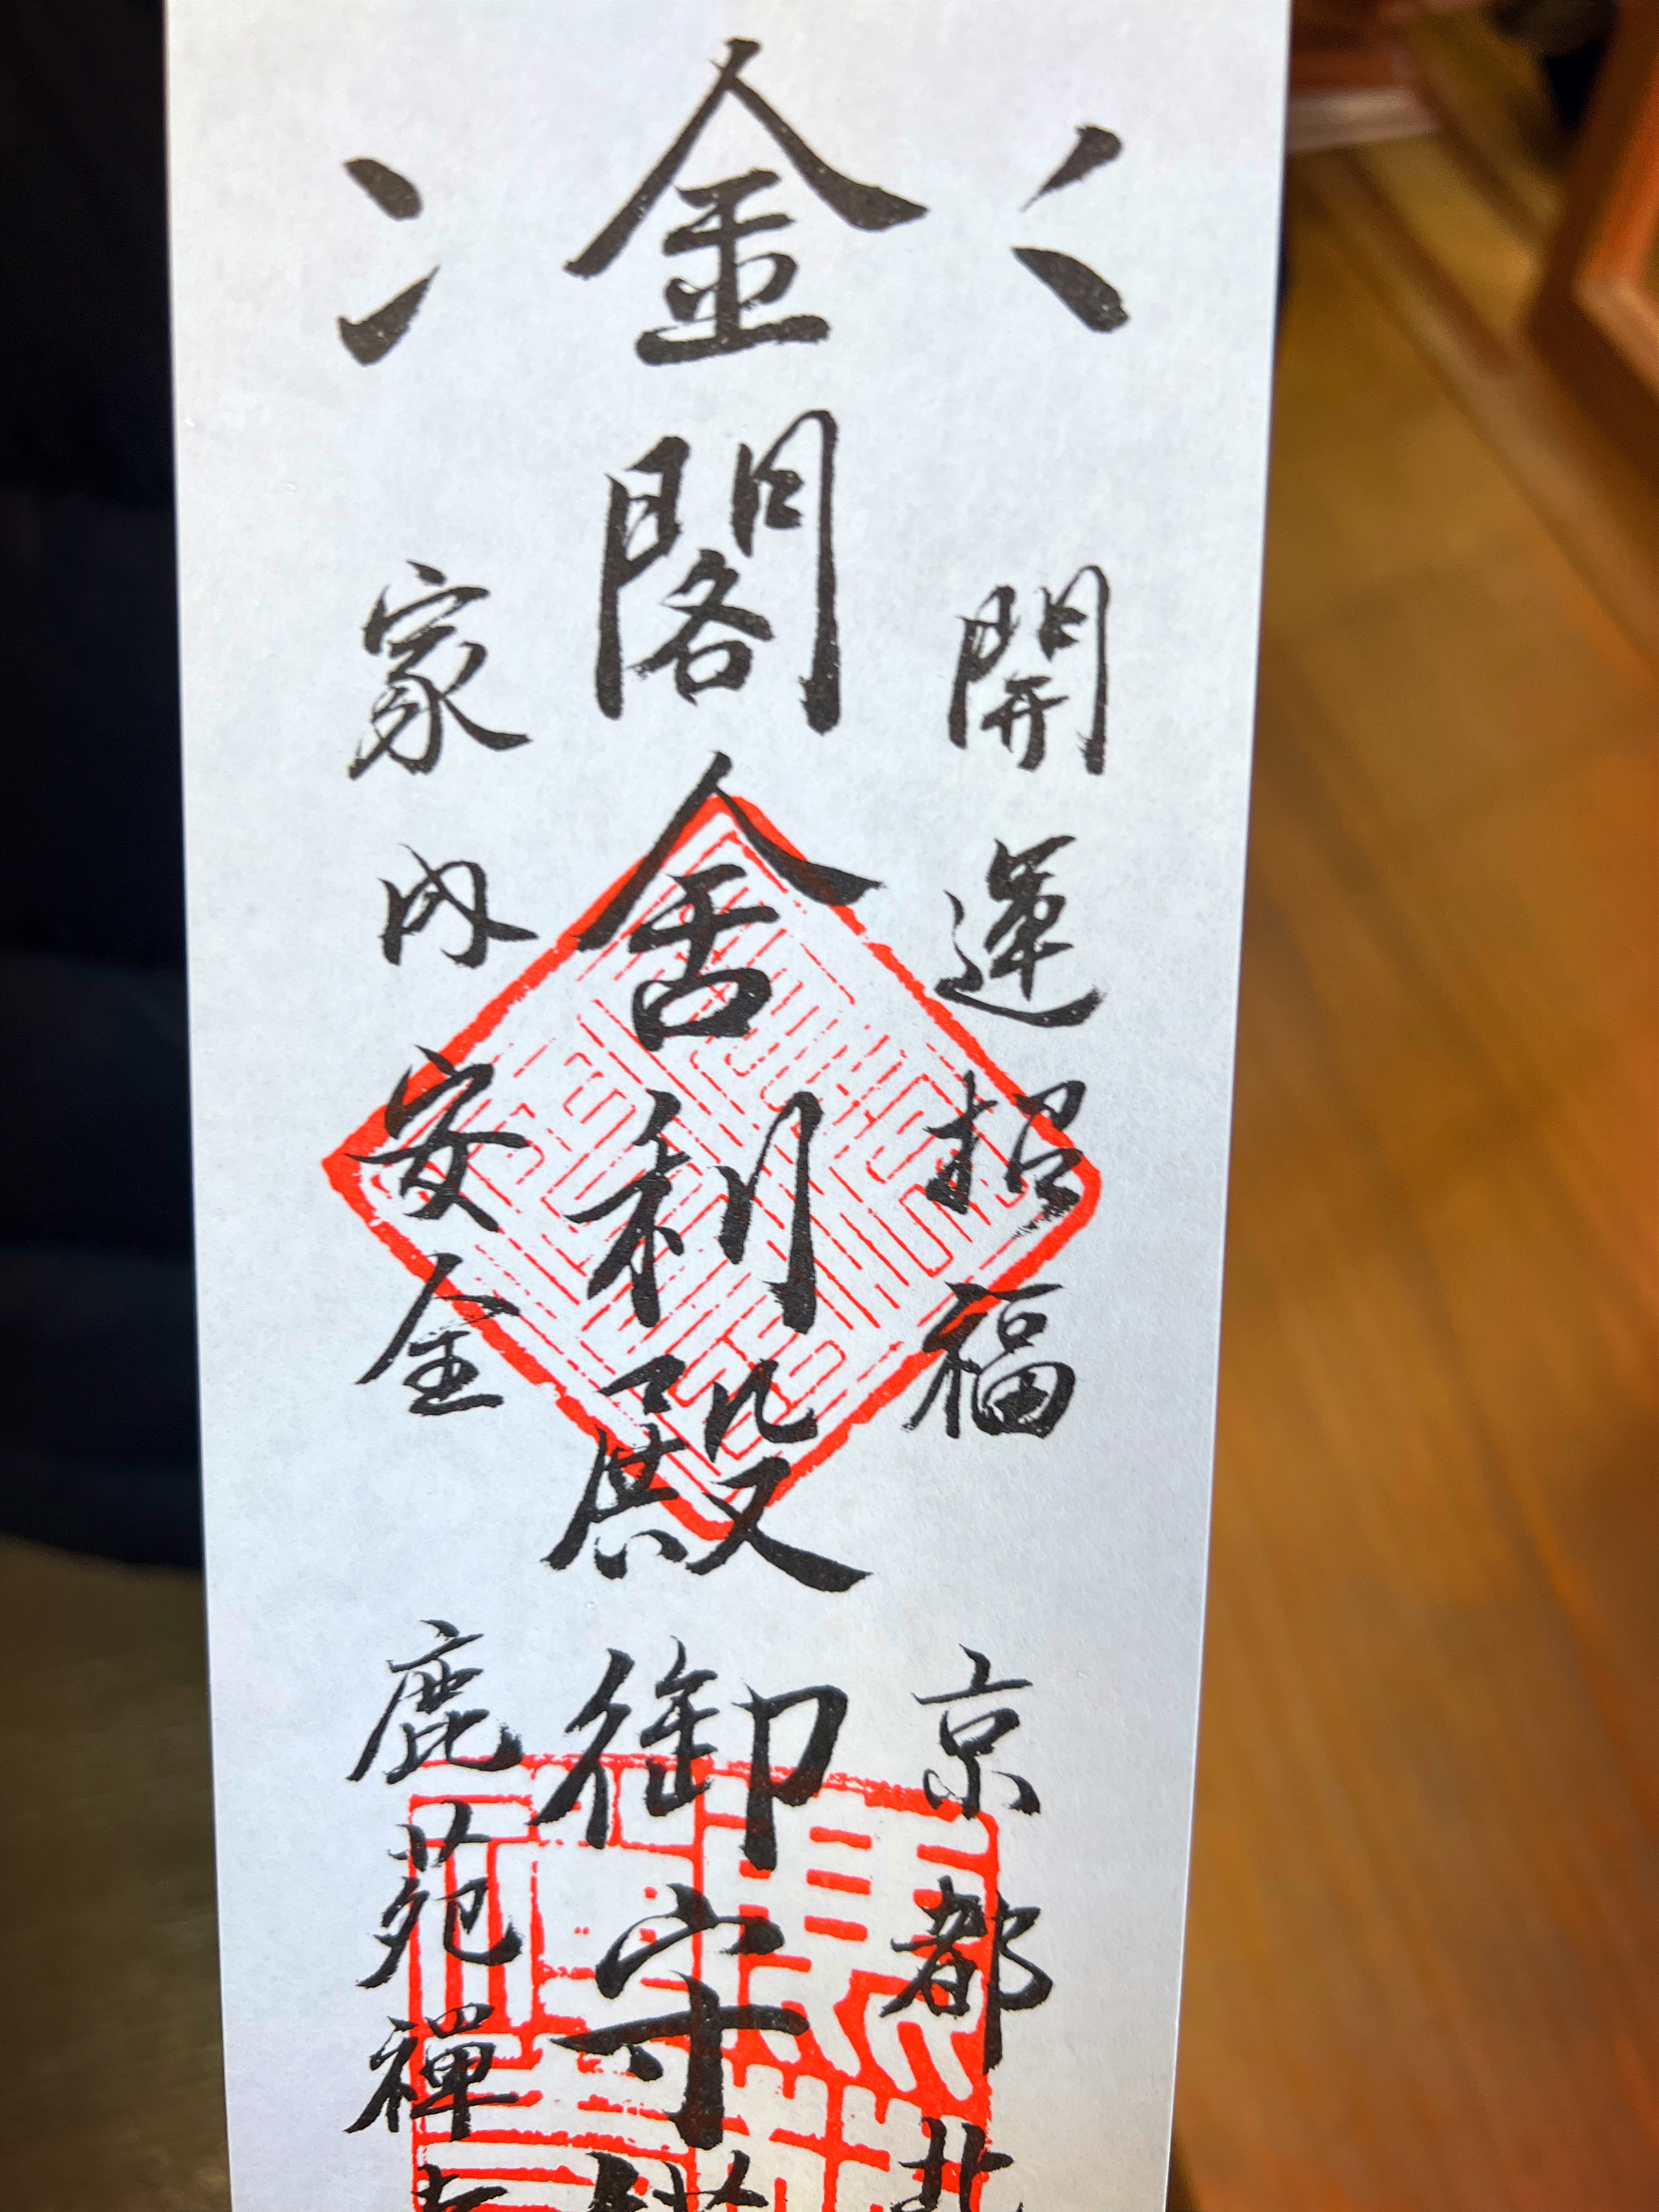 開運招福 京都北
金閣舎利殿御守護
家内安全 鹿苑禅寺